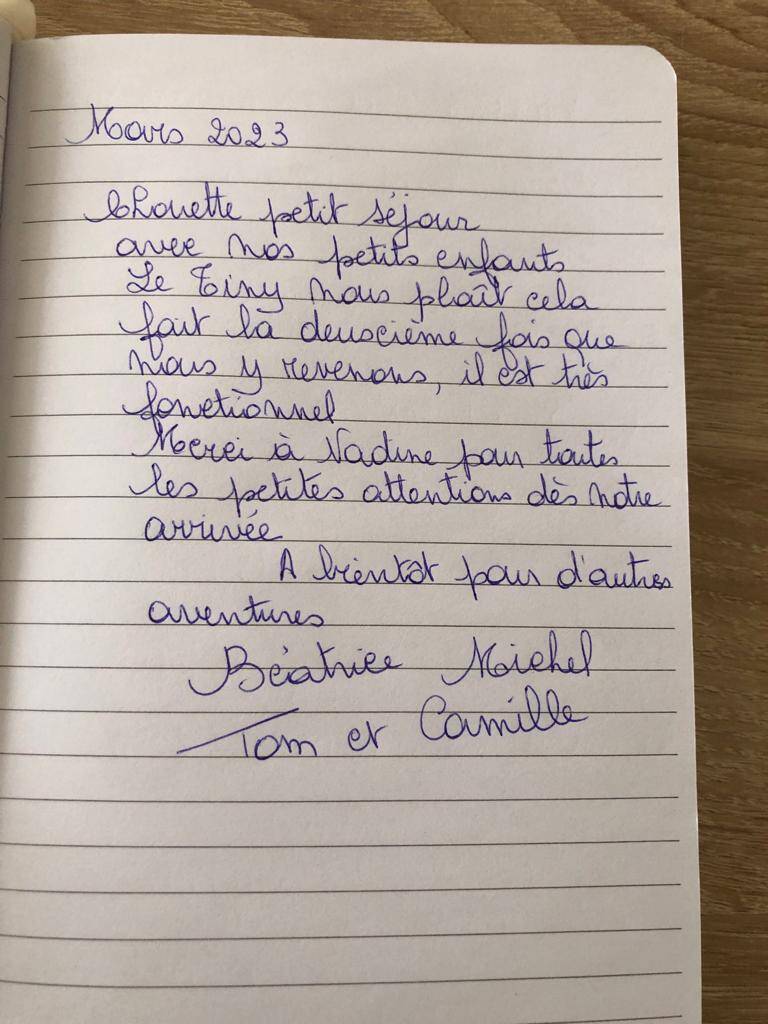 Mars 2023
Chouette petit séjour
avec nos petits enfants
Le Tiny nous plaît cela
fait la deuxième fois que
nous y revenons, il est très
fonctionnel
Merci à Nadine pour toutes
les petites attentions dès notre
arrivée
A bientôt pour d'autres
aventures
Béatrice Michel
Tom et Camille